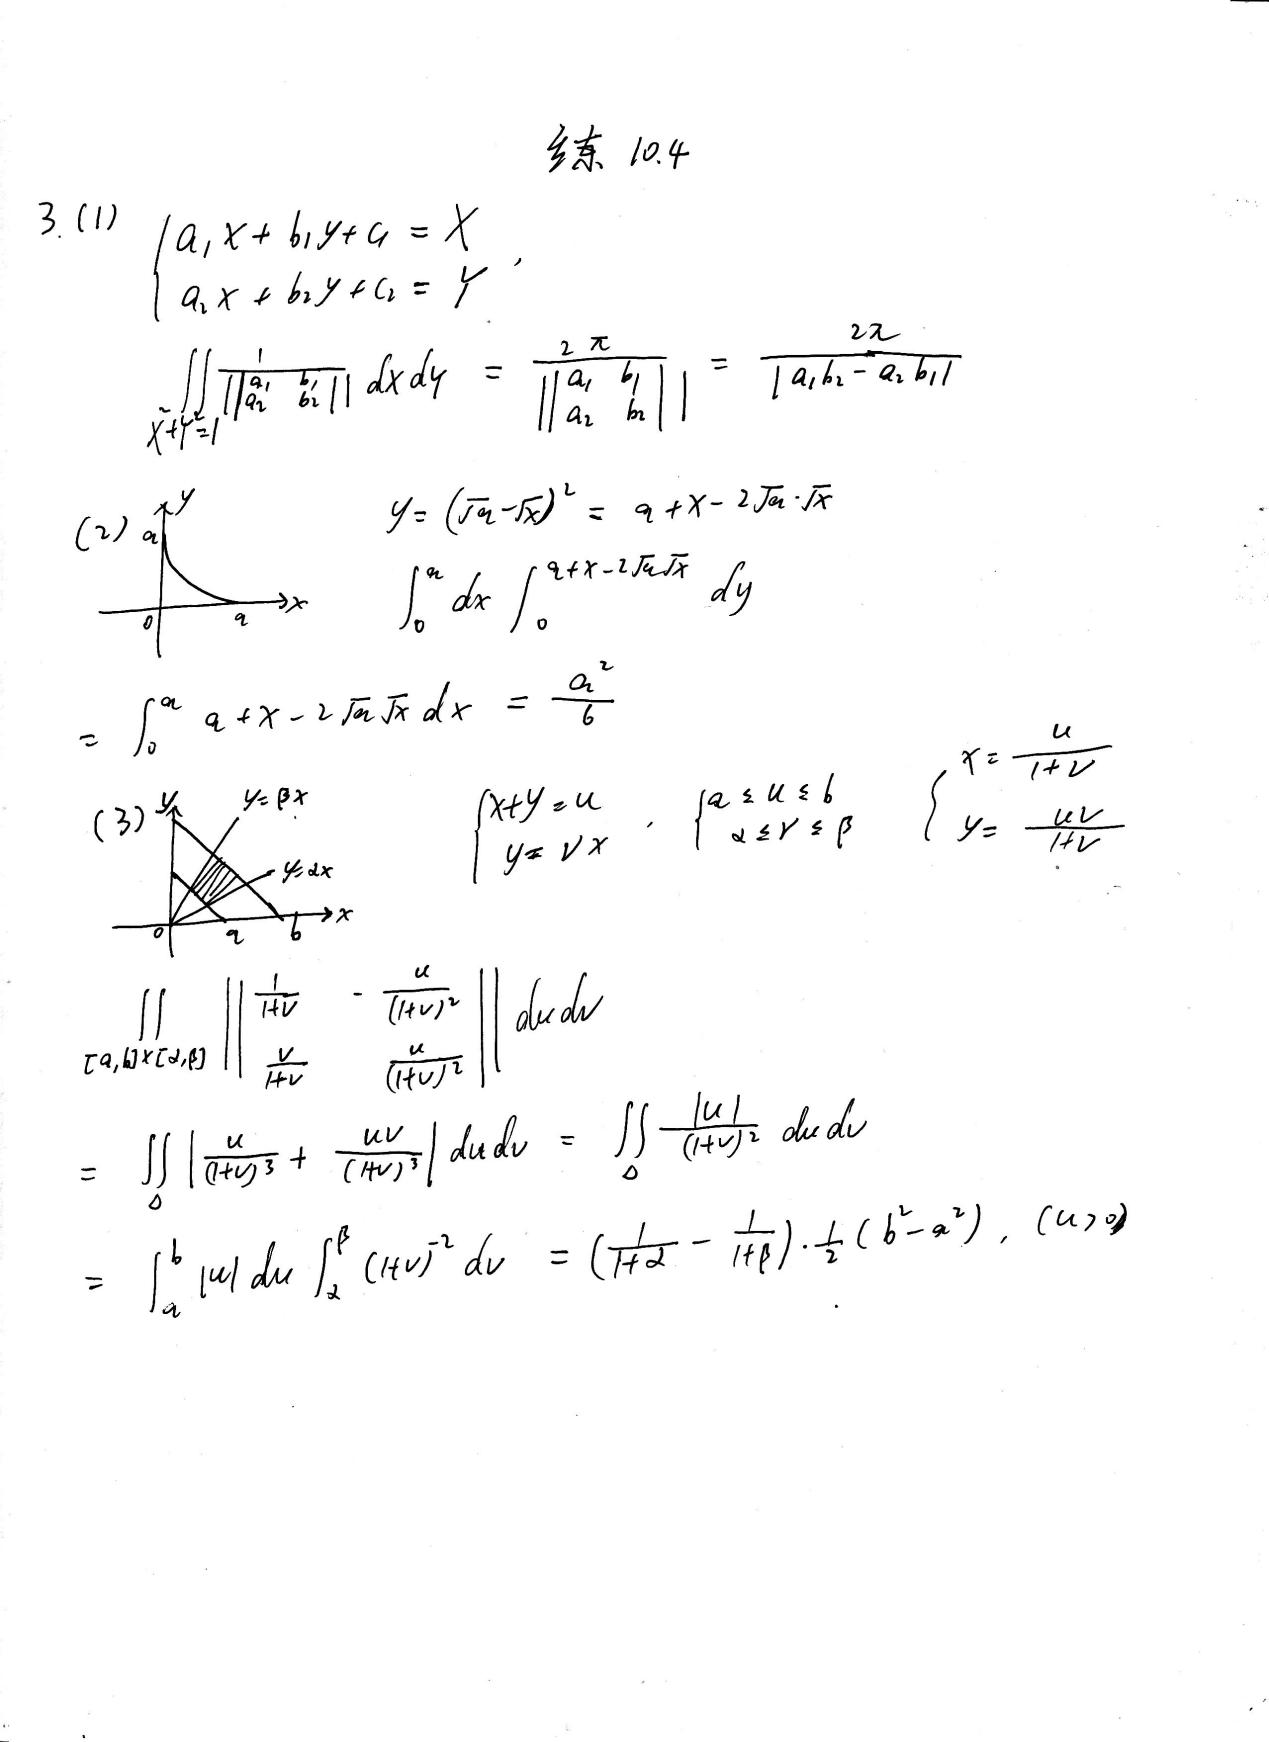 练 10.4
3.(1) { a₁x + b₁y + c₁ = X
a₂x + b₂y + c₂ = Y ,
∬_{X²+Y²=1} 1/||a₁ b₁; a₂ b₂|| dxdy = 2π/||a₁ b₁; a₂ b₂|| = 2π/|a₁b₂ - a₂b₁|
(2) y a 0 a x y = (√a - √x)² = a + x - 2√a·√x
∫₀^a dx ∫₀^{a+x-2√a√x} dy
= ∫₀^a a + x - 2√a√x dx = a²/6
(3) y y=βx y=αx 0 a b x { x+y=u y=vx , { a≤u≤b α≤v≤β { x = u/(1+v) y = uv/(1+v)
∬_{[a,b]×[α,β]} || 1/(1+v) -u/(1+v)²; v/(1+v) u/(1+v)² || dudv
= ∬_D | u/(1+v)³ + uv/(1+v)³ | dudv = ∬_D |u|/(1+v)² dudv
= ∫_a^b |u| du ∫_α^β (1+v)⁻² dv = (1/(1+α) - 1/(1+β))·½(b²-a²), (u>0)